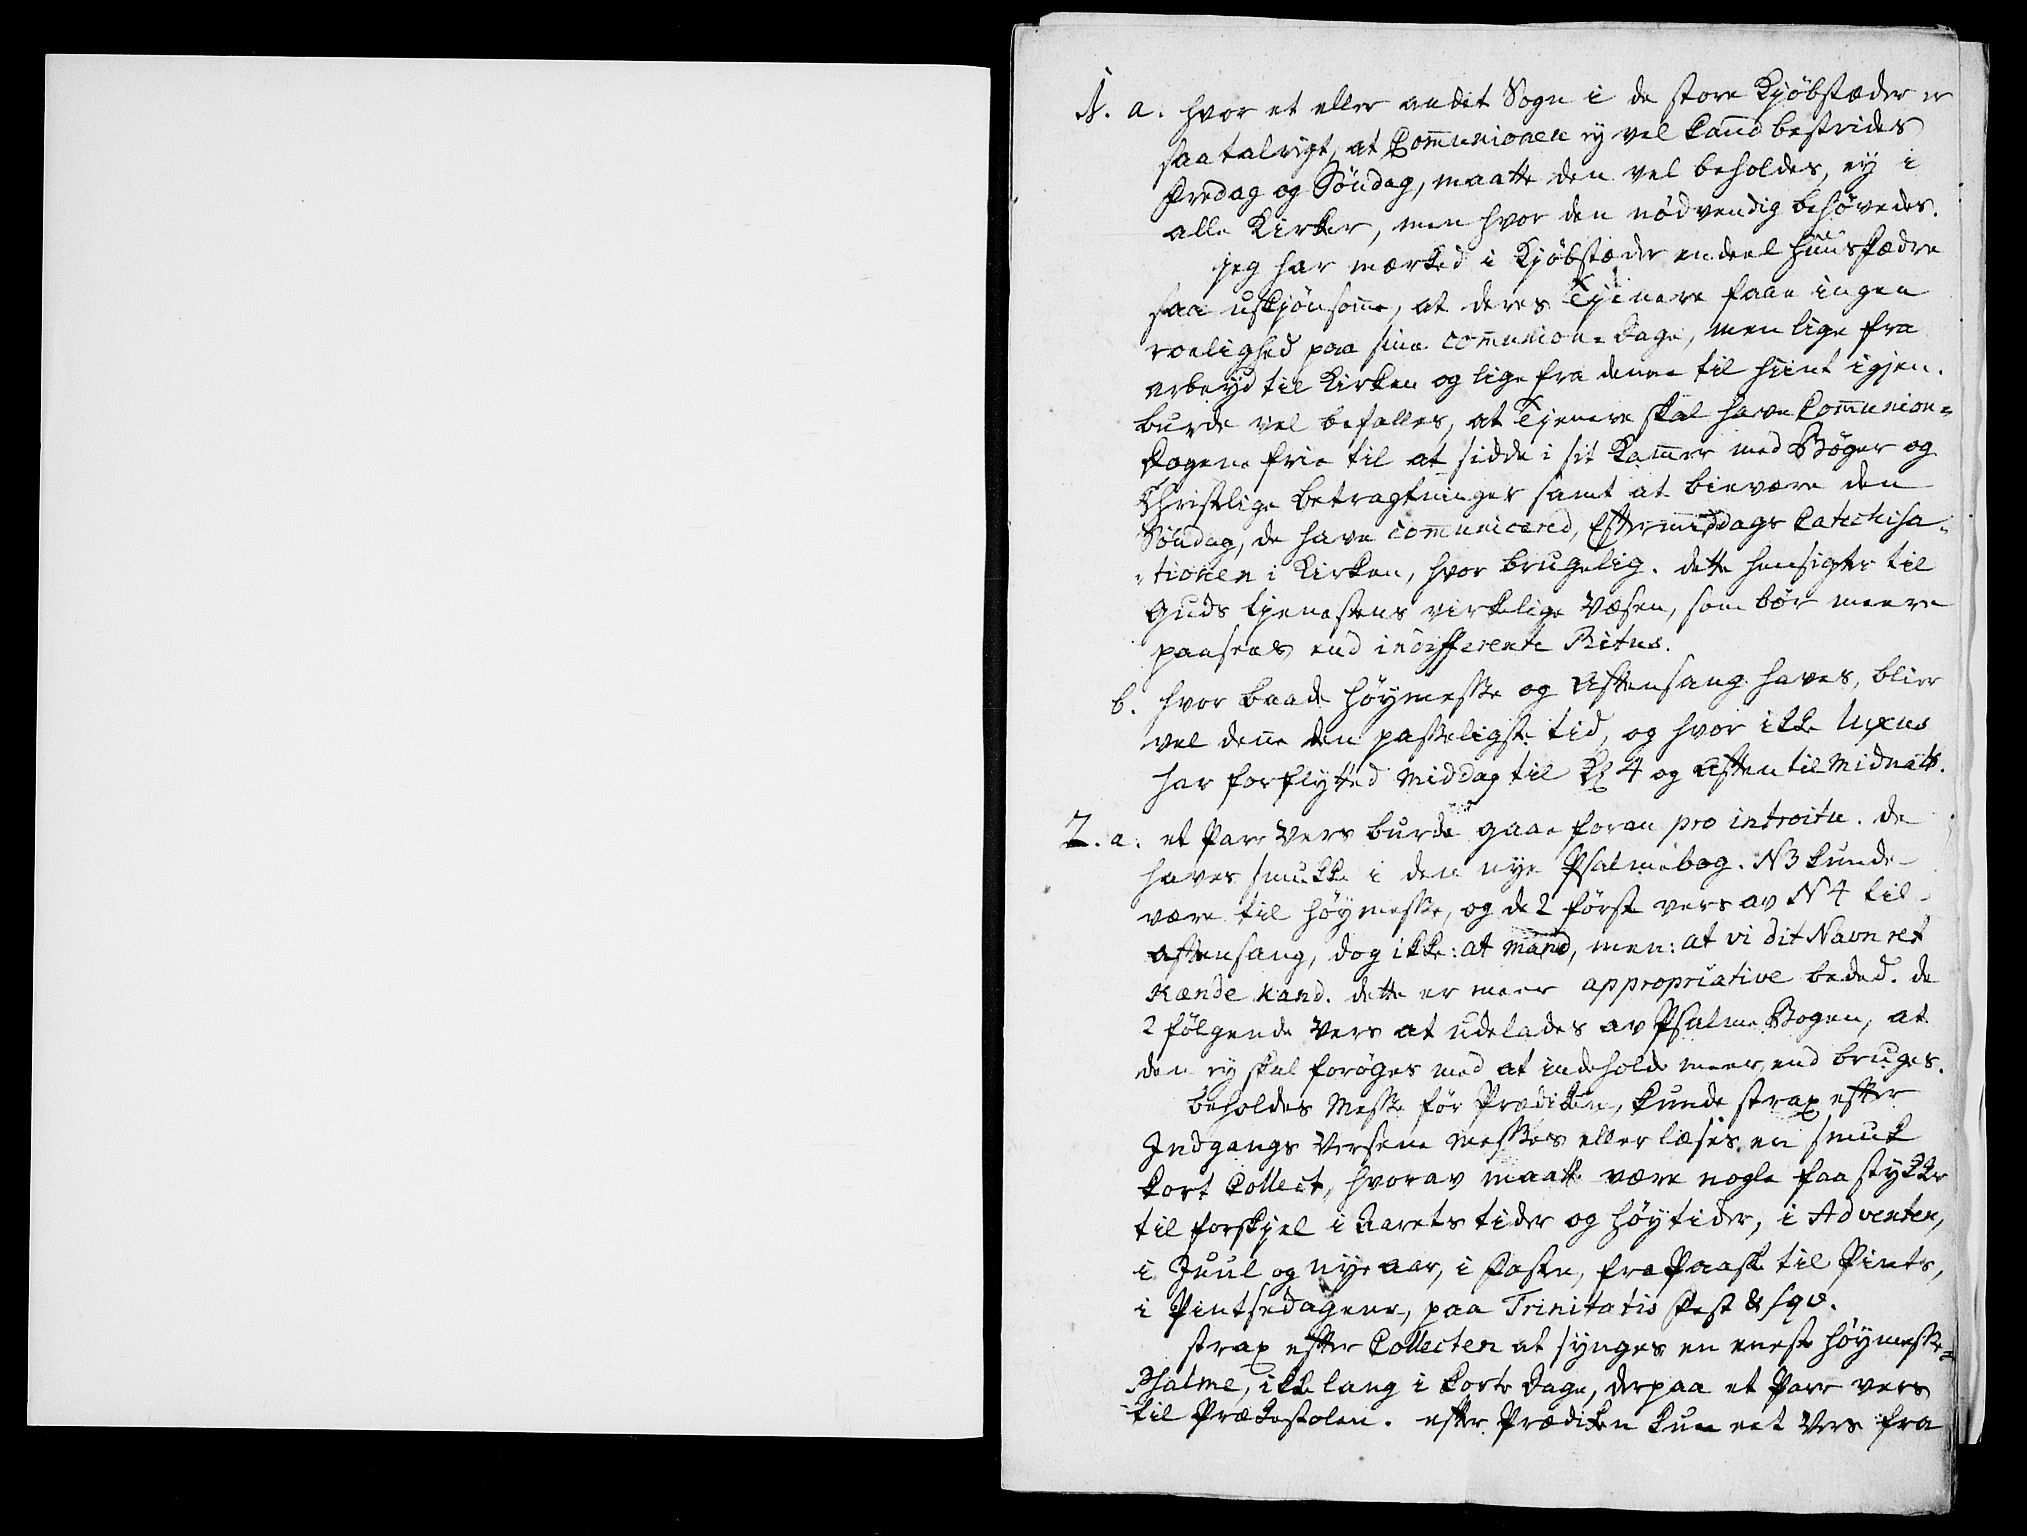 1. a. hvor et eller andet Sogn i de store Kjöbstæder er
saa talrigt, at Com̄unionen ey vel kan̄d bestrides
Fredag og Söndag, maatte den vel beholdes, ey i
alle Kirker, men hvor den nödvendig behövedes.
jeg har mærked i Kjöbstæder endeel Huusfædre
saa uskjönsom̄e, at deres Tjenere faae ingen
roelighed paa sine com̄union-dage, men lige fra
arbeyd til Kirken og lige fra denne til hiint igjen.
burde vel befalles, at Tjenere skal have Com̄union-
dagene frie til at sidde i sit Kam̄er med Böger og
Christelige betragtninger samt at bievære den
Söndag, de have com̄unicered, Eftermiddags Catechisa-
-tionen i Kirken, hvor brugelig. dette hensigter til
Guds tjenestens virkelige Væsen, som bör meere
paasees end indifferente Ritus.
b. hvor baade Höymesse og Aftensang haves, blier
vel den̄e den passeligste tid, og hvor ikke Luxus
har forflytted Middag til Kl 4 og Aften til Midnat.
2. a. et Par Vers burde gaae foran pro introitu. de
haves smukke i den nye Psalmebog. N 3 kunde
være til Höymesse, og de 2 först vers av N 4 til
aftensang, dog ikke: at mand, men: at vi dit Navn ret
Kænde kand. dette er meer appropriative beded. de
2 fölgende Vers at udelades av Psalme Bogen, at
den ey skal foröges med at indeholde meer, end bruges.
beholdes Messe för Prædiken, kunde strax efter
Indgangs Versene Messes eller læses en smuk
kort Collect, hvorav maatte være nogle faa stykker
til forskjel i Aarets tider og Höytider, i Adventen,
i Juul og nye aar, i Fasten, fra Paask til Pints,
i Pintsedagene, paa Trinitatis Fest & sqv.
strax efter Collecten at synges en eneste Höymesse-
Psalme, ikke lang i korte dage, derpaa et Par vers
til Prækestolen. efter Prædiken kun eet Vers fra